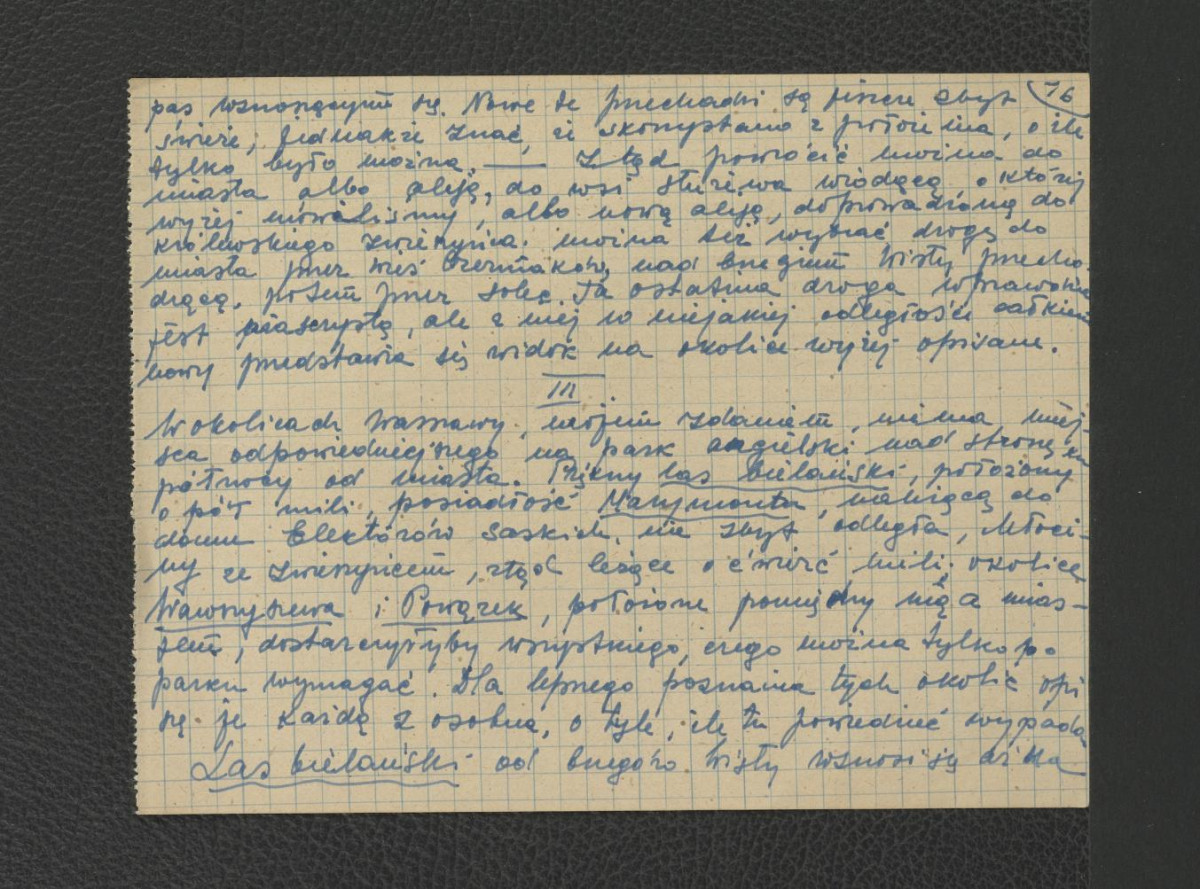 76
pas wznoszącymi się. Nowe te przechadzki są jeszcze zbyt
świeże, jednakże znać, że skorzystano z położenia, o ile
tylko było można. — Ztąd powrócić można do
miasta albo aleją, do wsi Służewa wiodącą, o której
wyżej mówiliśmy, albo nową aleją, doprowadzoną do
królewskiego zwierzyńca. można też wybrać drogę do
miasta przez wieś Czerniaków, nad brzegiem Wisły przecho-
dzącą, potem przez Solec. Ta ostatnia droga wprawdzie
jest piaszczystą, ale z niej w niejakiej odległości całkiem
nowy przedstawia się widok na okolice wyżej opisane.
III
W okolicach Warszawy, mojem zdaniem, niema miej-
sca odpowiedniejszego na park angielski nad stronę ku
północy od miasta. Piękny las bielański, położony
o pół mili, posiadłość Marymontu, należąca do
domu Elektorów Saskich, nie zbyt odległa, Młoci-
ny ze zwierzyńcem, ztąd leżące o ćwierć mili. okolice
Wawrzyszewa i Powązek, położone pomiędzy nią a mias-
tem, dostarczyłyby wszystkiego, czego można tylko po
parku wymagać. Dla lepszego poznania tych okolic opi
szę je każdą z osobna, o tyle, ile tu powiedzieć wypada
Las bielański od brzegów Wisły wznosi się aż na